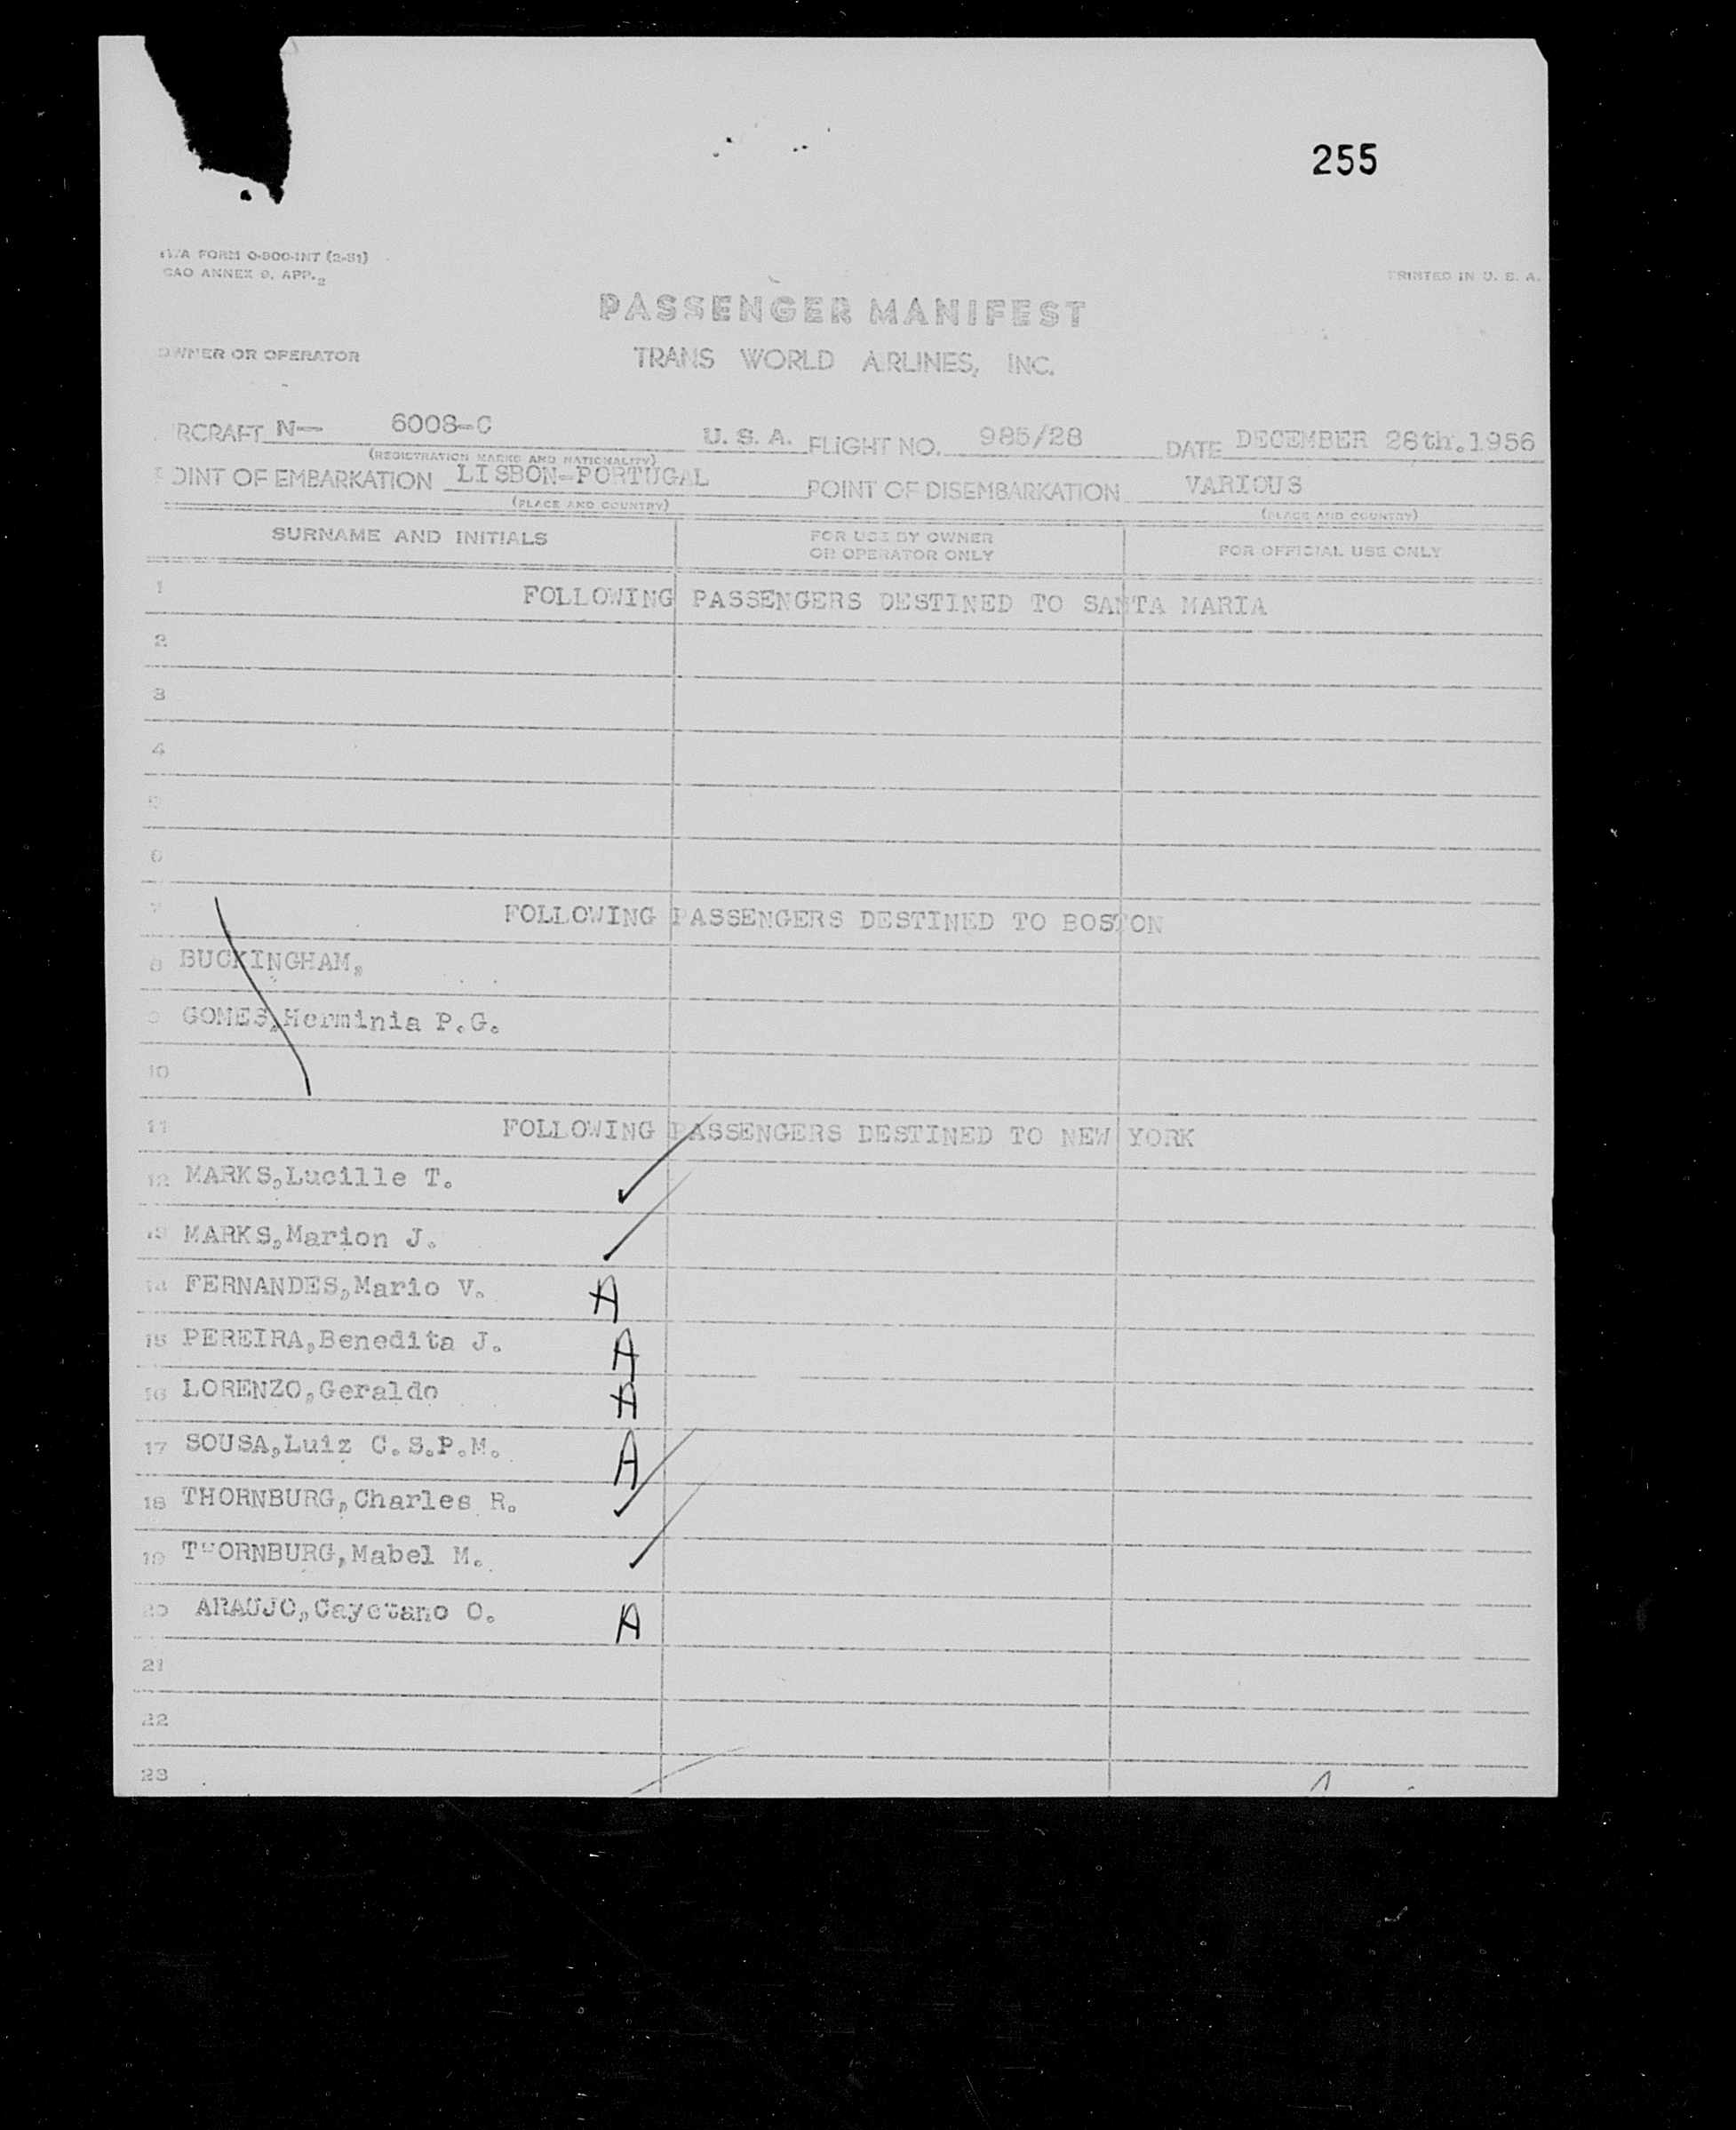 255
TWA FORM O-800-INT (2-51)
ICAO ANNEX 9, APP. 2
PRINTED IN U. S. A.
PASSENGER MANIFEST
OWNER OR OPERATOR
TRANS WORLD AIRLINES, INC.
AIRCRAFT N- 6008-C U. S. A. FLIGHT NO. 985/28 DATE DECEMBER 28th.1956
(REGISTRATION MARKS AND NATIONALITY)
POINT OF EMBARKATION LISBON-PORTUGAL POINT OF DISEMBARKATION VARIOUS
(PLACE AND COUNTRY) (PLACE AND COUNTRY)
SURNAME AND INITIALS FOR USE BY OWNER OR OPERATOR ONLY FOR OFFICIAL USE ONLY
1 FOLLOWING PASSENGERS DESTINED TO SANTA MARIA
2
3
4
5
6
7 FOLLOWING PASSENGERS DESTINED TO BOSTON
8 BUCKINGHAM,
9 GOMES,Herminia P.G.
10
11 FOLLOWING PASSENGERS DESTINED TO NEW YORK
12 MARKS,Lucille T.
13 MARKS,Marion J.
14 FERNANDES,Mario V. A
15 PEREIRA,Benedita J. A
16 LORENZO,Geraldo A
17 SOUSA,Luiz C.S.P.M. A
18 THORNBURG,Charles R.
19 THORNBURG,Mabel M.
20 ARAUJO,Cayetano O. A
21
22
23